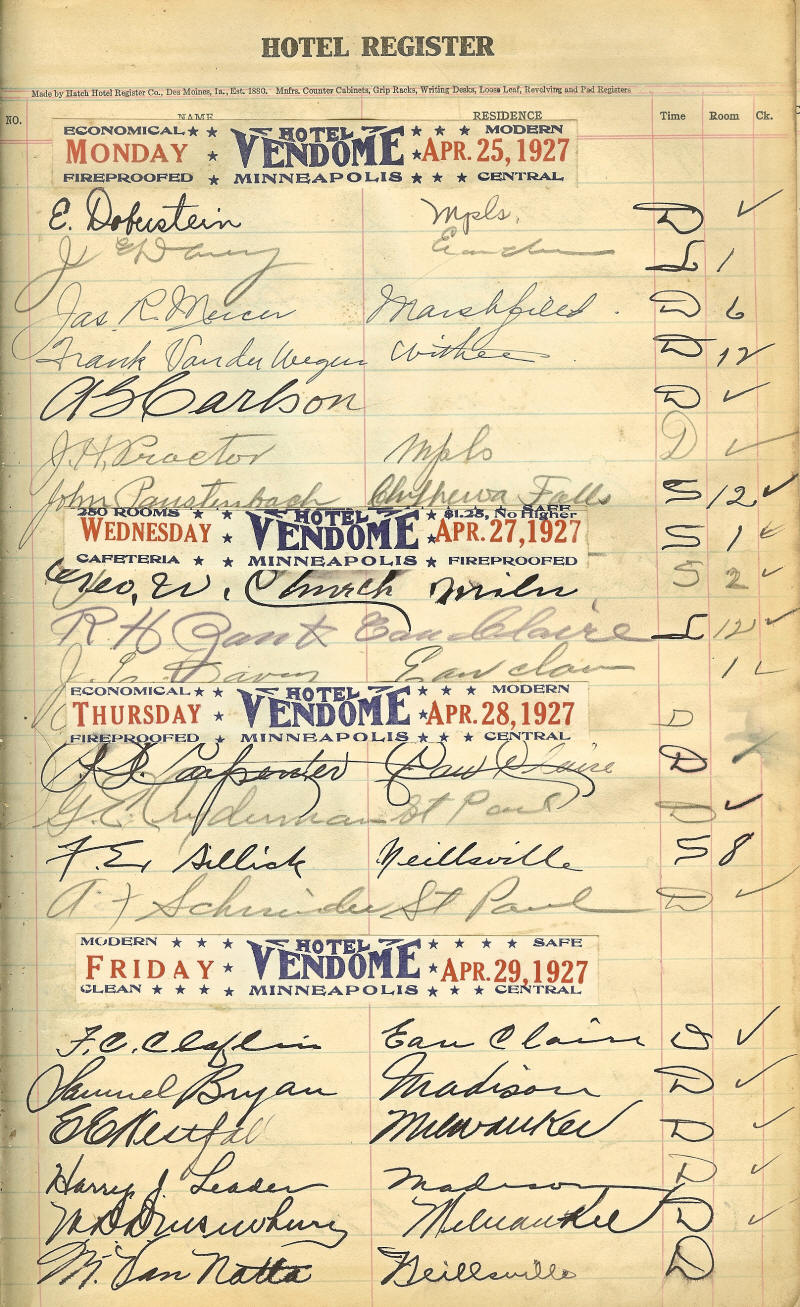 HOTEL REGISTER
Made by Hatch Hotel Register Co., Des Moines, Ia., Est. 1880. Mnfrs. Counter Cabinets, Grip Racks, Writing Desks, Loose Leaf, Revolving and Pad Registers
NO. NAME RESIDENCE Time Room Ck.
ECONOMICAL ★ ★ HOTEL ★ ★ ★ MODERN
MONDAY ★ VENDOME ★ APR. 25, 1927
FIREPROOFED ★ MINNEAPOLIS ★ ★ ★ CENTRAL
E. Doberstein Mpls. D ✓
J. L 1
Jas. R. Mercer Marshfield. D 6
Frank Van der Wegen Withee D 12
A G Carlson D ✓
J. H. Proctor Mpls D ✓
John Paustenbach Chippewa Falls S 12 ✓
250 ROOMS ★ ★ HOTEL ★ ★ $1.25, No Higher SAFE
WEDNESDAY ★ VENDOME ★ APR. 27, 1927 S 1 ✓
CAFETERIA ★ ★ MINNEAPOLIS ★ FIREPROOFED
Geo. W. Church Milw S 2 ✓
R H Gant Eau Claire L 12 ✓
J. Eau Claire 1 ✓
ECONOMICAL ★ ★ HOTEL ★ ★ ★ MODERN
THURSDAY ★ VENDOME ★ APR. 28, 1927 D
FIREPROOFED ★ MINNEAPOLIS ★ ★ ★ CENTRAL
Carpenter Eau Claire D
G. St Paul D ✓
F. E. Sillick Neillsville S 8
A F Schneider St Paul D ✓
MODERN ★ ★ ★ HOTEL ★ ★ ★ ★ SAFE
FRIDAY ★ VENDOME ★ APR. 29, 1927
CLEAN ★ ★ ★ ★ MINNEAPOLIS ★ ★ ★ CENTRAL
F. C. Claflin Eau Claire D ✓
Samuel Bryan Madison D ✓
E E Westfall Milwaukee D ✓
Harry J. Leader Madison D ✓
Milwaukee D ✓
M. Van Natta Neillsville D